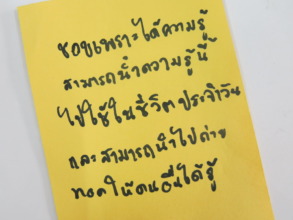 ชอบเพราะได้ความรู้
สามารถนำความรู้นี้
ไปใช้ในชีวิตประจำวัน
และสามารถนำไปถ่าย
ทอดให้คนอื่นได้รู้